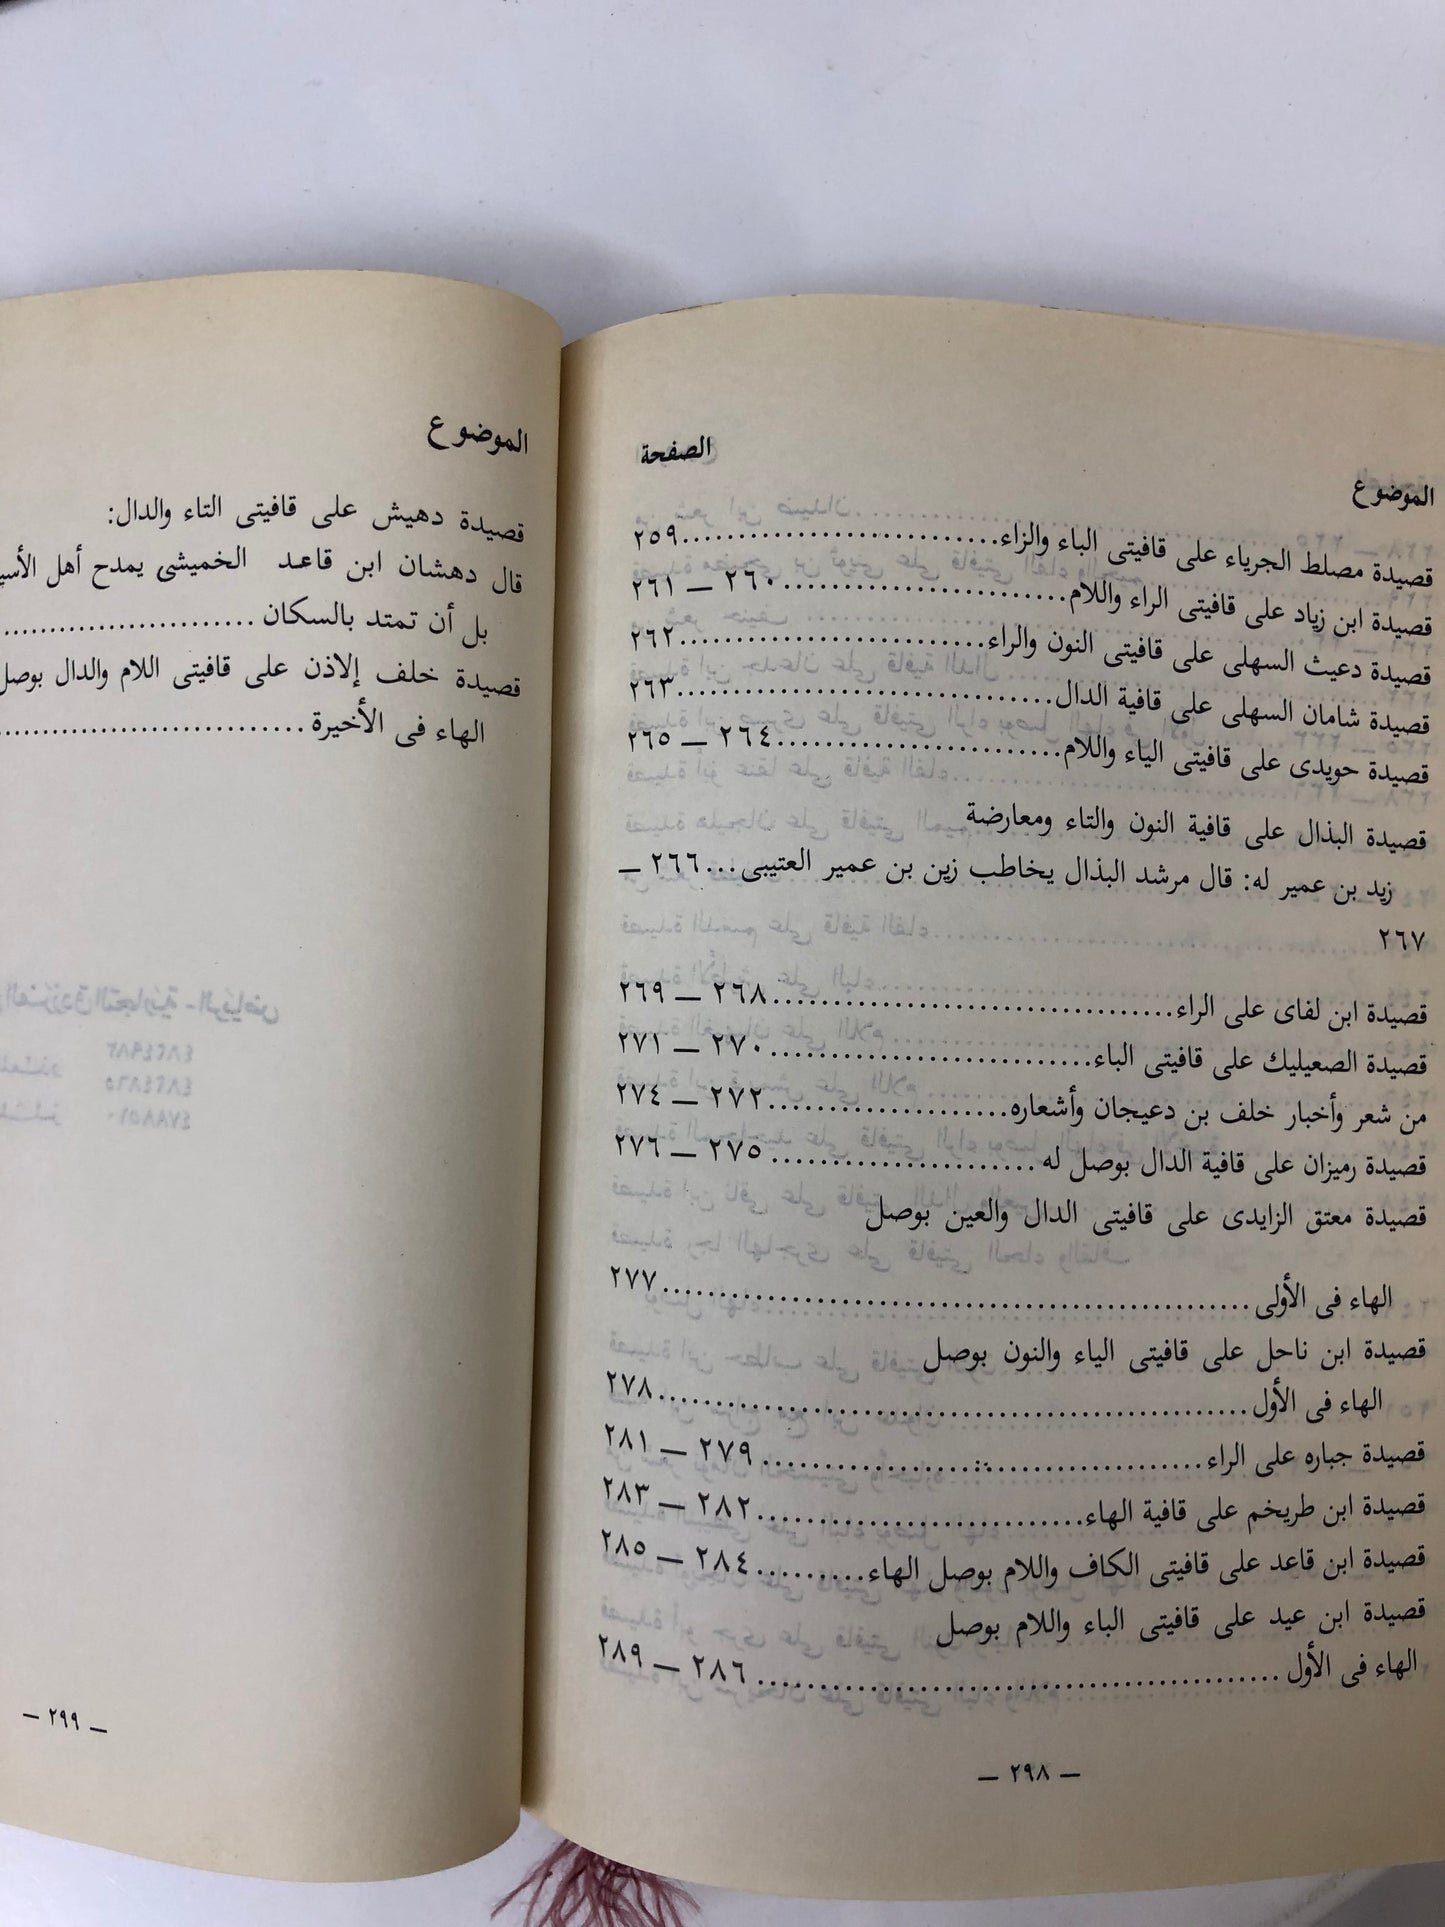 الموضوع الصفحة
قصيدة مصلط الجرباء على قافيتى الباء والزاء............................٢٥٩
قصيدة ابن زياد على قافيتى الراء واللام........................٢٦٠ — ٢٦١
قصيدة دعيث السهلى على قافيتى النون والراء..........................٢٦٢
قصيدة شامان السهلى على قافية الدال................................٢٦٣
قصيدة حويدى على قافيتى الياء واللام........................٢٦٤ — ٢٦٥
قصيدة البذال على قافية النون والتاء ومعارضة
زيد بن عمير له: قال مرشد البذال يخاطب زين بن عمير العتيبى...٢٦٦ —
٢٦٧
قصيدة ابن لفاى على الراء...................................٢٦٨ — ٢٦٩
قصيدة الصعيليك على قافيتى الباء............................٢٧٠ — ٢٧١
من شعر وأخبار خلف بن دعيجان وأشعاره.....................٢٧٢ — ٢٧٤
قصيدة رميزان على قافية الدال بوصل له.......................٢٧٥ — ٢٧٦
قصيدة معتق الزايدى على قافيتى الدال والعين بوصل
الهاء فى الأولى..................................................٢٧٧
قصيدة ابن ناحل على قافيتى الياء والنون بوصل
الهاء فى الأول..................................................٢٧٨
قصيدة جباره على الراء.....................................٢٧٩ — ٢٨١
قصيدة ابن طريخم على قافية الهاء............................٢٨٢ — ٢٨٣
قصيدة ابن قاعد على قافيتى الكاف واللام بوصل الهاء..........٢٨٤ — ٢٨٥
قصيدة ابن عيد على قافيتى الباء واللام بوصل
الهاء فى الأول............................................٢٨٦ — ٢٨٩
— ٢٩٨ —
الموضوع
قصيدة دهيش على قافيتى التاء والدال:
قال دهشان ابن قاعد الخميشى يمدح أهل
بل أن تمتد بالسكان........................
قصيدة خلف إلاذن على قافيتى اللام والدال بوصل
الهاء فى الأخيرة..............................
— ٢٩٩ —